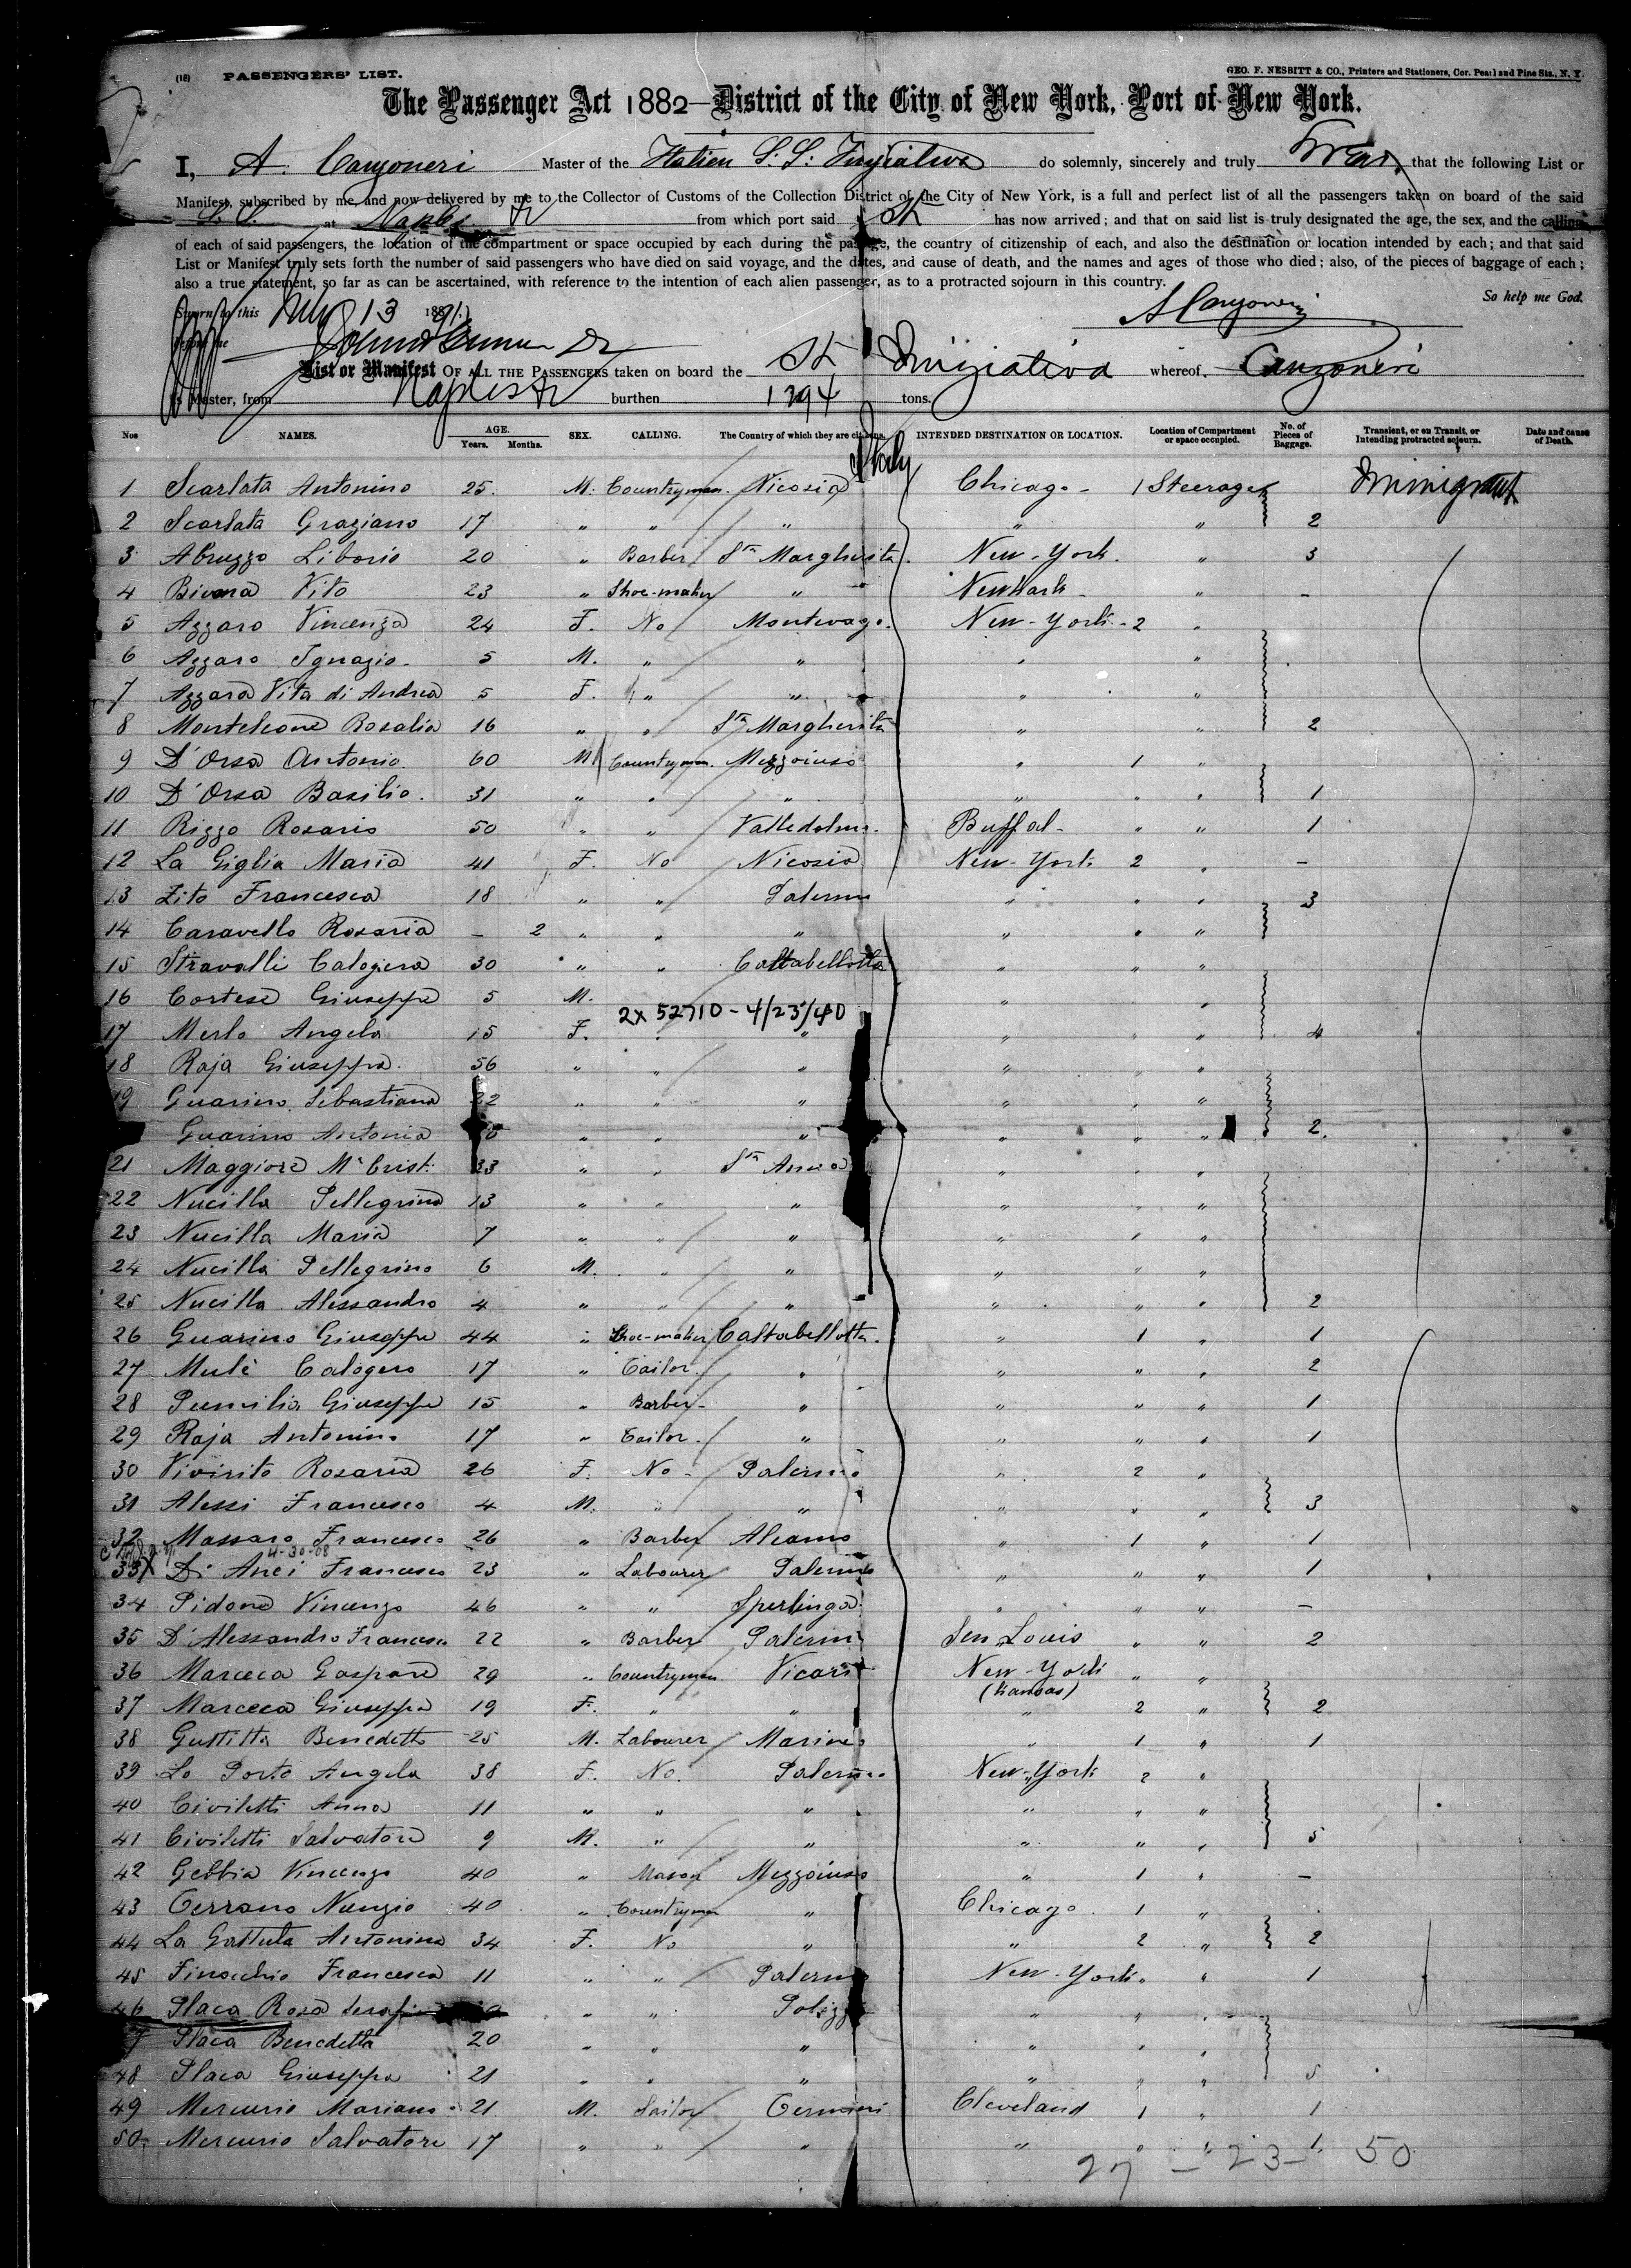 (18) PASSENGERS' LIST. GEO. F. NESBITT & CO., Printers and Stationers, Cor. Pearl and Pine Sts., N. Y.
The Passenger Act 1882—District of the City of New York, Port of New York.
I, A. Canzoneri Master of the Italien S. S. Iniziativa do solemnly, sincerely and truly Swear that the following List or
Manifest, subscribed by me, and now delivered by me to the Collector of Customs of the Collection District of the City of New York, is a full and perfect list of all the passengers taken on board of the said
S. S. at Naples from which port said has now arrived; and that on said list is truly designated the age, the sex, and the calling
of each of said passengers, the location of the compartment or space occupied by each during the passage, the country of citizenship of each, and also the destination or location intended by each; and that said
List or Manifest truly sets forth the number of said passengers who have died on said voyage, and the dates, and cause of death, and the names and ages of those who died; also, of the pieces of baggage of each;
also a true statement, so far as can be ascertained, with reference to the intention of each alien passenger, as to a protracted sojourn in this country.
So help me God.
Sworn to this 13 188 A Canzoneri
before me
List or Manifest OF ALL THE PASSENGERS taken on board the Iniziativa whereof Canzoneri
is Master, from Naples burthen 1394 tons.
Nos NAMES. AGE. Years. Months. SEX. CALLING. The Country of which they are citizens. INTENDED DESTINATION OR LOCATION. Location of Compartment or space occupied. No. of Pieces of Baggage. Transient, or en Transit, or Intending protracted sojourn. Date and cause of Death.
Italy
1 Scarlata Antonino 25. M. Countryman. Nicosia Chicago - 1 Steerage Immigrant
2 Scarlata Graziano 17 " " " " " 2
3 Abruzzo Liborio 20 " Barber Sta Margherita New-York. " 3
4 Bivona Vito 23 " Shoe-maker " Newhark - " -
5 Azzaro Vincenza 24 F. No Montevago. New-York - 2 "
6 Azzaro Ignazio 5 M. " " " "
7 Azzara Vita di Andrea 5 F. " " " "
8 Monteleone Rosalia 16 " " Sta Margherita " " 2
9 D'Orsa Antonio 60 M Countryman. Mezzoiuso " 1 "
10 D'Orsa Basilio. 31 " " " " " " 1
11 Rizzo Rosario 50 " " Valledolmo. Buffal- " " 1
12 La Giglia Maria 41 F. No Nicosia New-York 2 " -
13 Zito Francesca 18 " " Palermo " " " 3
14 Caravello Rosaria - 2 " " " " " "
15 Stravalli Calogera 30 " " Caltabellotta " " "
16 Cortese Giuseppe 5 M. " "
2x 52710 - 4/23/40
17 Merlo Angela 15 F. " " " " " 4
18 Raja Giuseppa. 56 " " " " " "
19 Guarino Sebastiana 22 " " " " " "
Guarino Antonia " " " " " " 2.
21 Maggiore Ma Crist. 33 " " Sta Anna " " "
22 Nucilla Pellegrina 13 " " " " " "
23 Nucilla Maria 7 " " " " " "
24 Nucilla Pellegrino 6 M. " " " " "
25 Nucilla Alessandro 4 " " " " " " 2
26 Guarino Giuseppe 44 " Shoe-maker Caltabellotta. " 1 " 1
27 Mulè Calogero 17 " Tailor " " " " 2
28 Pumilia Giuseppe 15 " Barber - " " " " 1
29 Raja Antonino 17 " Tailor. " " " " 1
30 Vivirito Rosaria 26 F. No - Palermo " 2 "
31 Alessi Francesco 4 M. " " " " " 3
32 Massaro Francesco 26 " Barber Alcamo " 1 " 1
4-30-08
33 X Di Anci Francesco 23 " Labourer Palermo " " " 1
34 Pidone Vincenzo 46 " " Sperlinga " " " -
35 D'Alessandro Francesco 22 " Barber Palermo Sen Louis " " 2
36 Marceca Gaspare 29 " Countryman Vicari New-York " "
(Kansas)
37 Marceca Giuseppa 19 F. " " " 2 " 2
38 Gullitta Benedetto 25 M. Labourer Marineo " 1 " 1
39 Lo Porto Angela 38 F. No. Palermo New-York 2 "
40 Civiletti Anna 11 " " " " " "
41 Civiletti Salvatore 9 M. " " " " " 5
42 Gebbia Vincenzo 40 " Mason Mezzoiuso " 1 " -
43 Terrano Nunzio 40 " Countryman " Chicago. 1 "
44 La Gattuta Antonina 34 F. No " " 2 " 2
45 Finocchio Francesca 11 " " Palermo New-York " " 1
46 Placa Rosa Serafina " " Polizzi " " "
7 Placa Benedetta 20 " " " " " "
48 Placa Giuseppa 21 " " " " " " 5
49 Mercurio Mariano 21 M. Sailor Termini Cleveland 1 " 1
50 Mercurio Salvatore 17 " " " " " " 1.
27 - 23 - 50